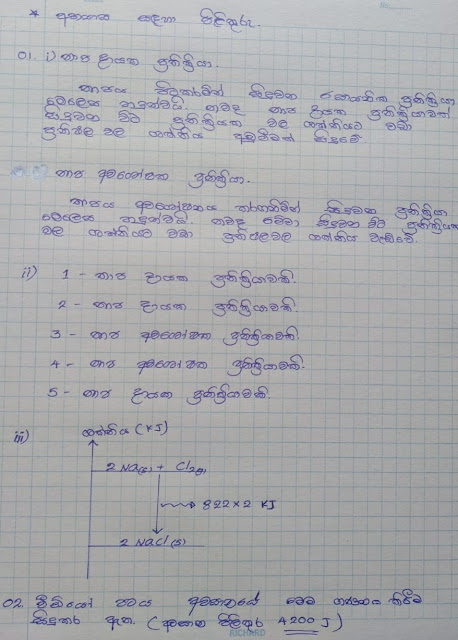 * අභ්‍යාස සඳහා පිළිතුරු.
01. i) තාප දායක ප්‍රතික්‍රියා.
තාපය පිටකරමින් සිදුවන රසායනික ප්‍රතික්‍රියා
මෙලෙස හඳුන්වයි. තවද තාප දායක ප්‍රතික්‍රියාවක්
සිදුවන විට ප්‍රතික්‍රියක වල ශක්තියට වඩා
ප්‍රතිඵල වල ශක්තිය අඩුවීමක් සිදුවේ.
තාප අවශෝෂක ප්‍රතික්‍රියා.
තාපය අවශෝෂණය කරගනිමින් සිදුවන ප්‍රතික්‍රියා
මෙලෙස හඳුන්වයි. තවද මෙවා සිදුවන විට ප්‍රතික්‍රියක
වල ශක්තියට වඩා ප්‍රතිඵලවල ශක්තිය වැඩිවේ.
ii) 1 - තාප දායක ප්‍රතික්‍රියාවකි.
2 - තාප දායක ප්‍රතික්‍රියාවකි.
3 - තාප අවශෝෂක ප්‍රතික්‍රියාවකි.
4 - තාප අවශෝෂක ප්‍රතික්‍රියාවකි.
5 - තාප දායක ප්‍රතික්‍රියාවකි.
iii) ශක්තිය (KJ)
2 Na(s) + Cl2(g)
822 × 2 KJ
2 NaCl(s)
02. වීඩියෝ පටය අවසානයේ මෙම ගණනය කිරීම
සිදුකර ඇත. (අවසාන පිළිතුර 4200 J)
RICHARD